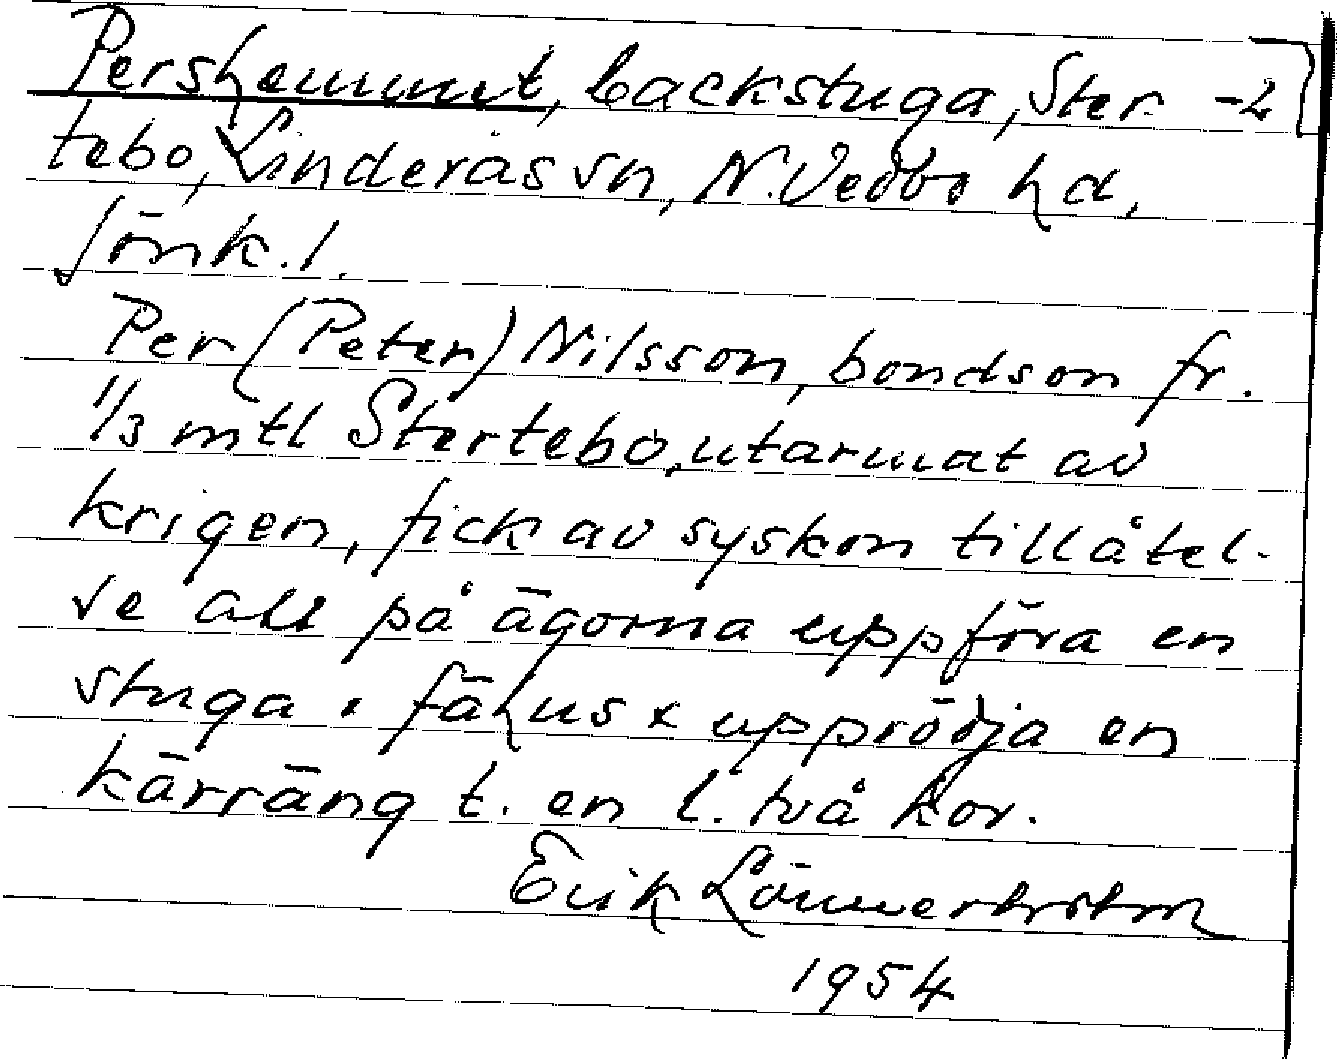 Pershemmet, backstuga, Ster- -2
tebo, Linderås sn, N. Vedbo hd,
Jönk. l.
Per (Peter) Nilsson, bondson fr.
1/3 mtl Stertebo, utarmat av
krigen, fick av syskon tillåtel-
se att på ägorna uppföra en
stuga x fähus x upprödja en
kärräng t. en l. två kor.
Erik
1954